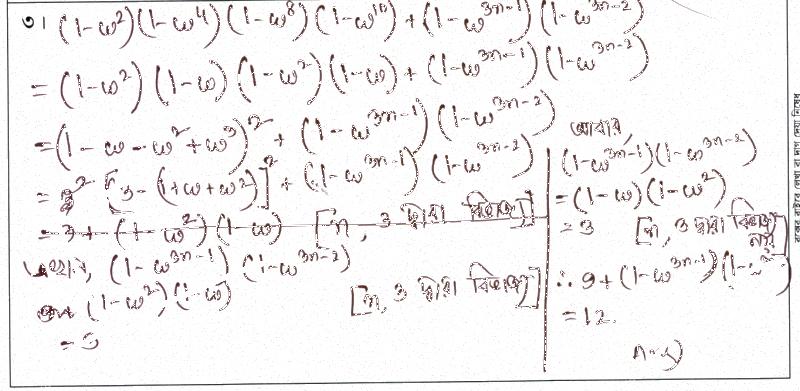 ৩। (1-ω²)(1-ω⁴)(1-ω⁸)(1-ω¹⁰) + (1-ω³ⁿ⁻¹)(1-ω³ⁿ⁻²)
= (1-ω²)(1-ω)(1-ω²)(1-ω) + (1-ω³ⁿ⁻¹)(1-ω³ⁿ⁻²)
= (1-ω-ω²+ω³)² + (1-ω³ⁿ⁻¹)(1-ω³ⁿ⁻²)
= ² [3-(1+ω+ω²)]² + (1-ω³ⁿ⁻¹)(1-ω³ⁿ⁻²)
= 9+(1-ω²)(1-ω) [n, 3 দ্বারা বিভাজ্য]
এখানে, (1-ω³ⁿ⁻¹)(1-ω³ⁿ⁻²)
(1-ω²)(1-ω) [n, 3 দ্বারা বিভাজ্য]
= 3
আবার,
(1-ω³ⁿ⁻¹)(1-ω³ⁿ⁻²)
= (1-ω)(1-ω²)
= 3 [n, 3 দ্বারা বিভাজ্য
নয়]
∴ 9+(1-ω³ⁿ⁻¹)(1-ω³ⁿ⁻²)
= 12.
Ans